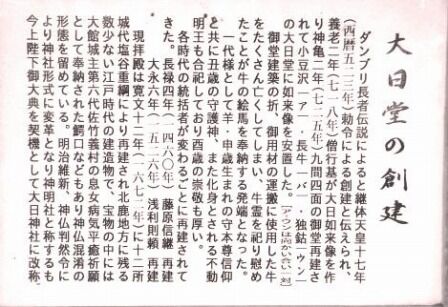 大日堂の創建
ダンブリ長者伝説によると継体天皇十七年
(西暦五二三年)勅令による創建と伝えられ、
養老二年(七一八年)僧行基が大日如来像を作
り神亀二年(七二五年)九間四面の御堂再建さ
れて小豆沢「ア」・長牛「バ」・独鈷「ウン」
の大日堂に如来像を安置した。
御堂建築の折、御用材の運搬に使用した牛
をたくさん亡くしてしまい、牛霊を祀り慰め
たことが牛の絵馬を奉納する発端となった。
一代様として羊・申歳生まれの守本尊信仰
と共に丑歳の守護神、また化身とされる不動
明王も合祀しており酉歳の崇敬も厚い。
各時代の統括者が変わるごとに再建されて
きた。長禄四年(一四六〇年)藤原信継 再建
大永六年(一五二六年)浅利則頼 再建
現拝殿は寛文十二年(一六七二年)に十二所
城代塩谷重綱により再建され北鹿地方に残る
数少ない江戸時代の建造物で、宝物の中には
大館城主第六代佐竹義村の息女病気平癒祈願
として奉納された鰐口などもあり神仏混淆の
形態を留めている。明治維新、神仏判然令に
より神社形式に変革となり神明社と称するも
今上陛下御大典を契機として大日神社に改称。